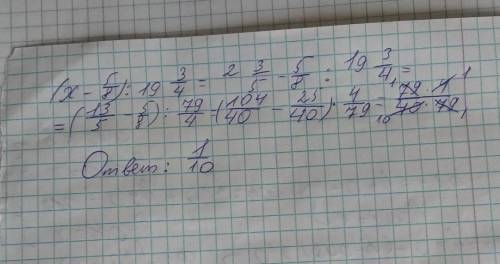 (x - 5/8) : 19 3/4 = 2 3/5 - 5/8 : 19 3/4 =
= (13/5 - 5/8) : 79/4 · (104/40 - 25/40) · 4/79 = 79 · 1/40 · 79
Ответ: 1/10